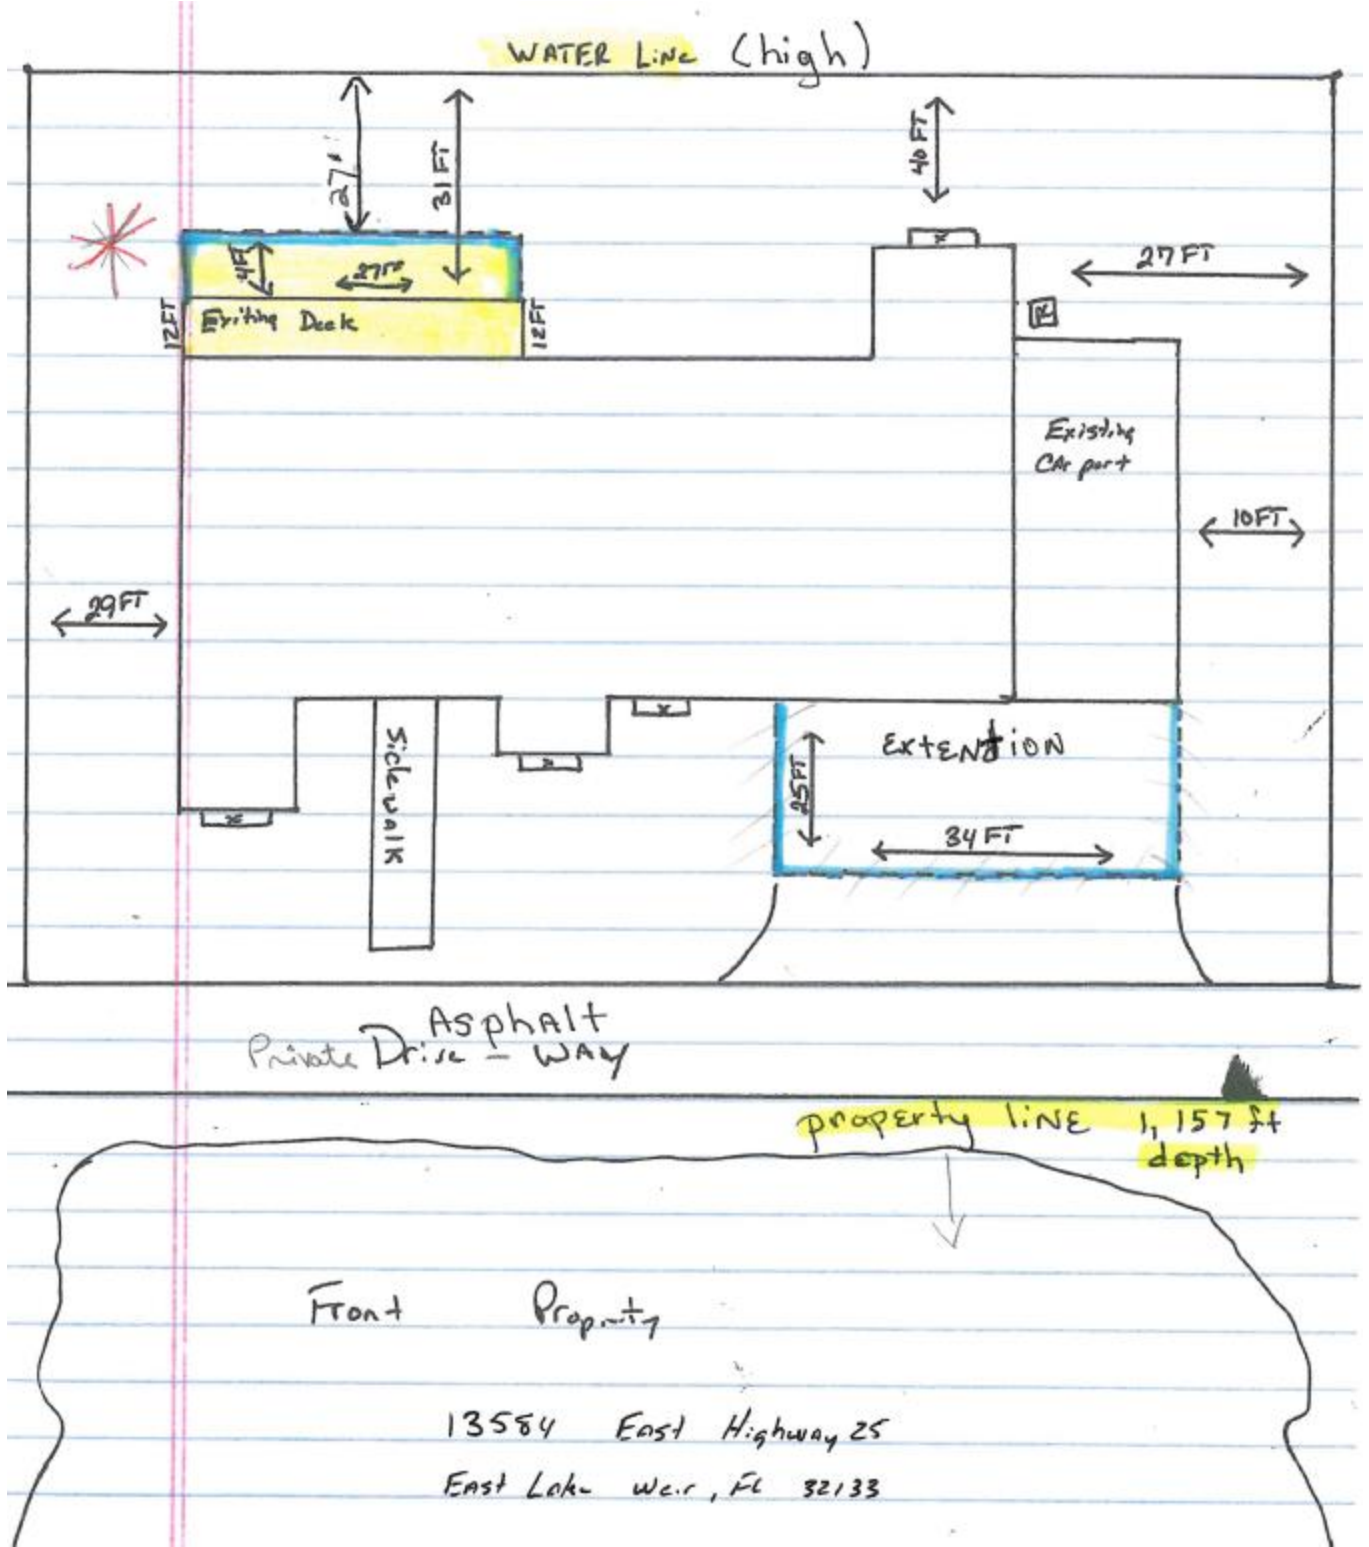 WATER LiNe (high)
27'
31 FT
40 FT
27 FT
4FT
27FT
12FT
Exiting Deck
12FT
R
Existing
CAr port
10FT
29FT
x
x
x
x
Sidewalk
EXtENtiON
25FT
34 FT
Asphalt
Private Drive - WAy
property liNE 1,157 ft
depth
Front Property
13584 East Highway 25
EAst Lake Weir, FL 32133